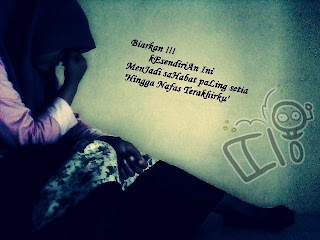 Biarkan !!!
kEsendiriAn Ini
MenJadi saHabat paLing setia
'Hingga Nafas Terakhirku'